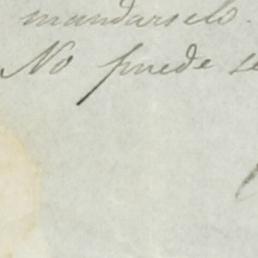 mandarselo.
No puede se